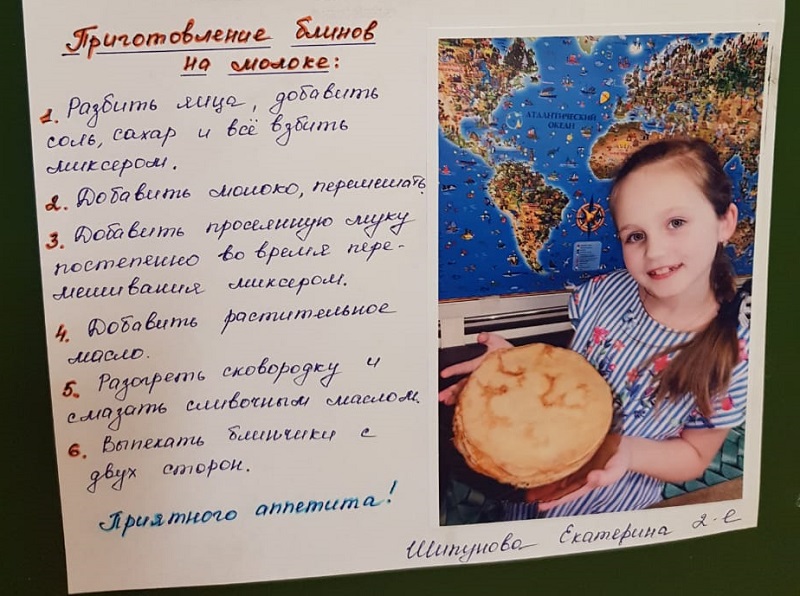 Приготовление блинов
на молоке:
1. Разбить яйца, добавить
соль, сахар и всё взбить
миксером.
2. Добавить молоко, перемешать
3. Добавить просеянную муку
постепенно во время пере-
мешивания миксером.
4. Добавить растительное
масло.
5. Разогреть сковородку и
смазать сливочным маслом.
6. Выпекать блинчики с
двух сторон.
Приятного аппетита!
АТЛАНТИЧЕСКИЙ
ОКЕАН
Шипунова Екатерина 2-е